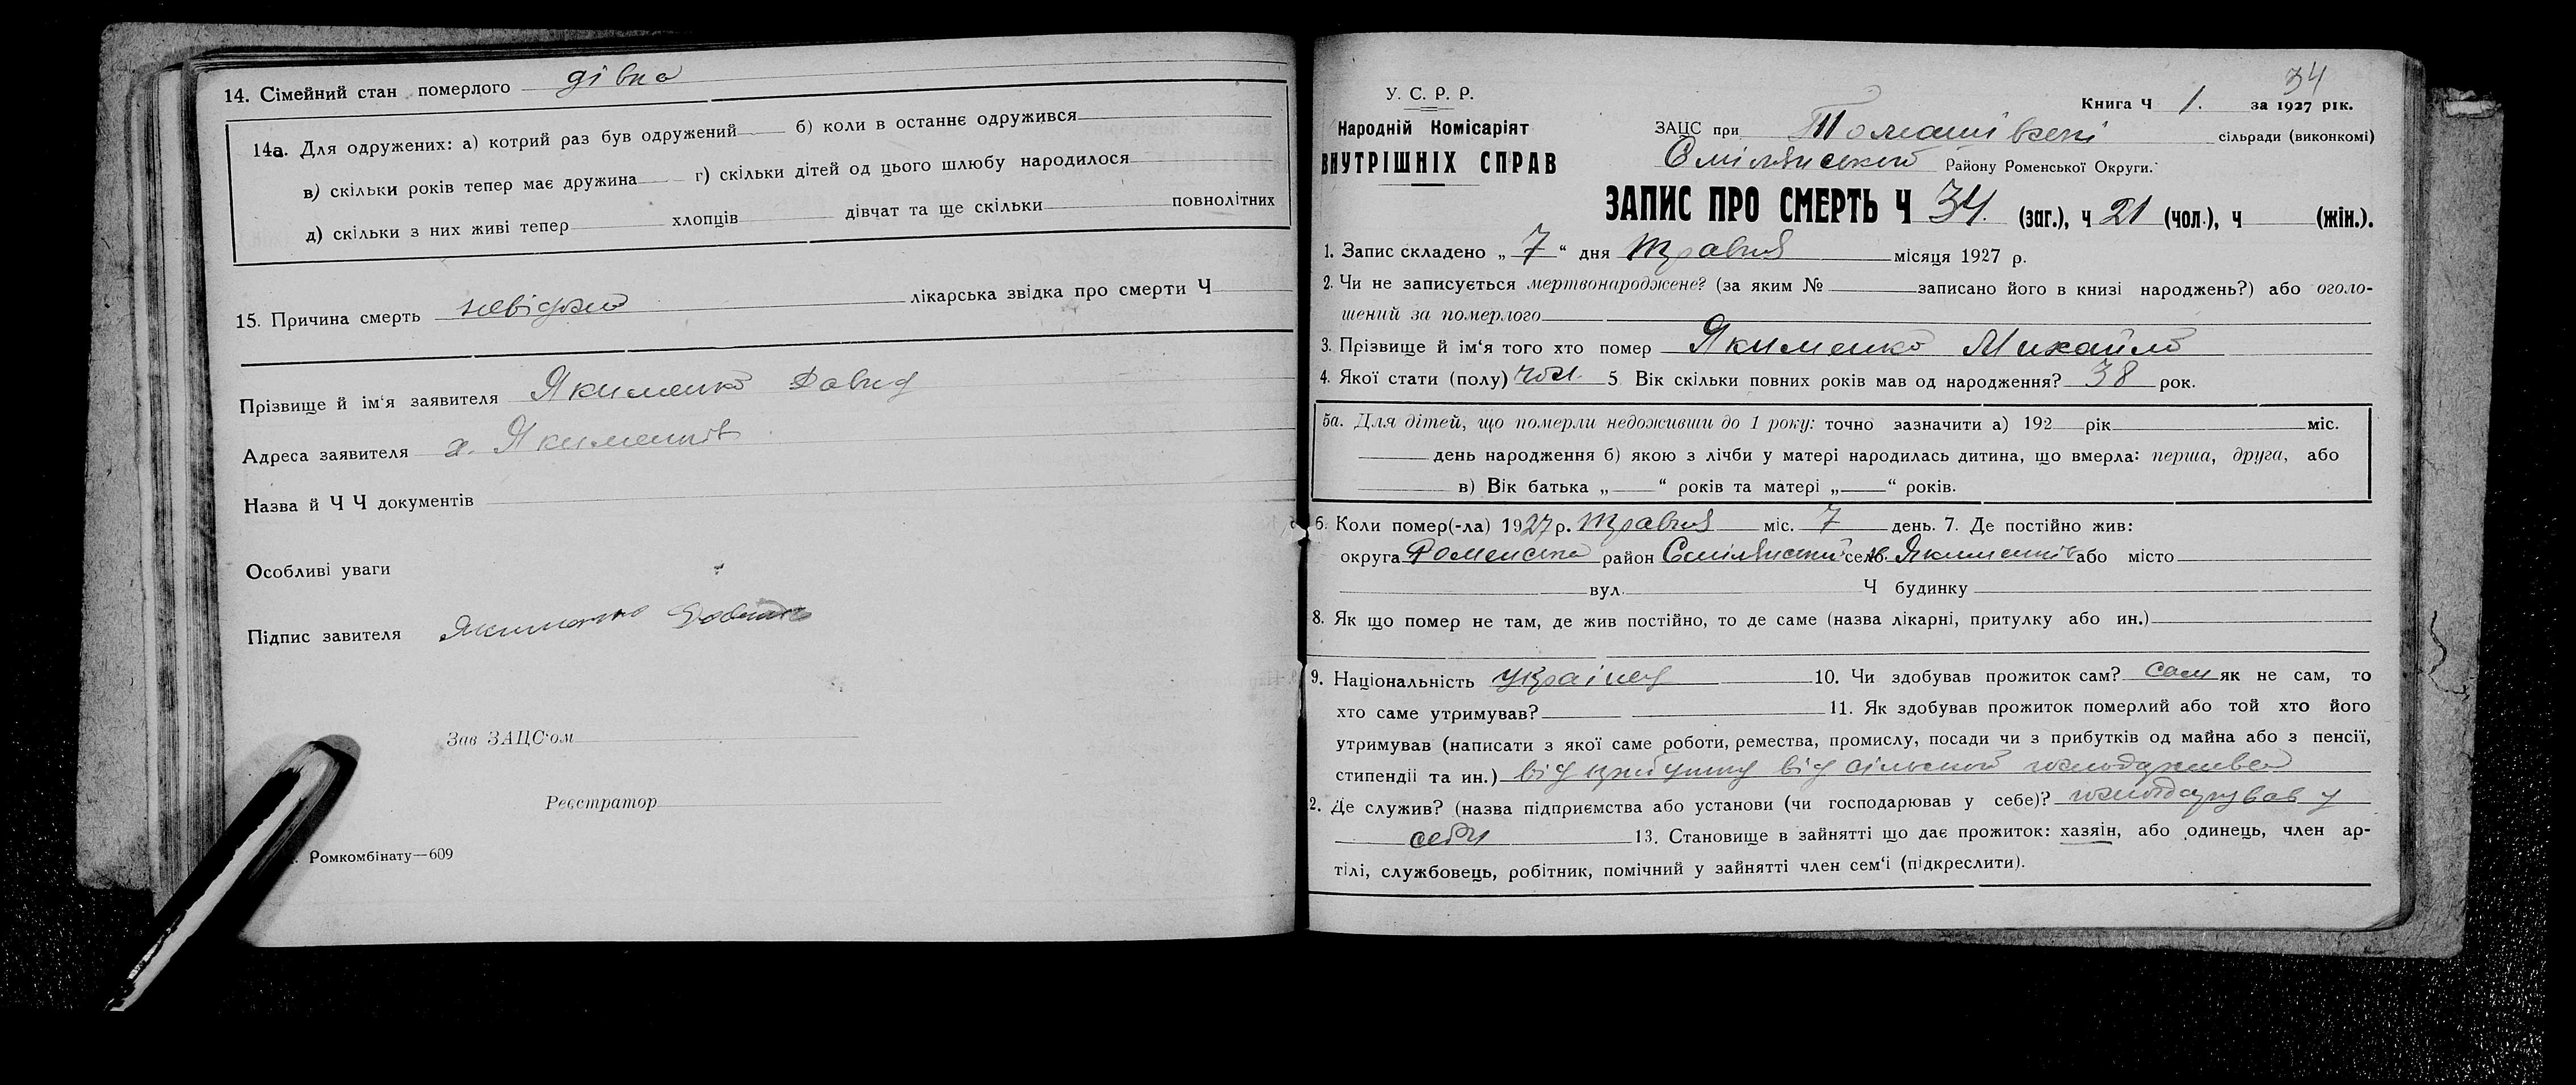 14. Сімейний стан померлого дівка
14а. Для одружених: а) котрий раз був одружений б) коли в останнє одружився
в) скільки років тепер має дружина г) скільки дітей од цього шлюбу народилося
д) скільки з них живі тепер хлопців дівчат та ще скільки повнолітних
15. Причина смерть невідома лікарська звідка про смерти Ч
Прізвище й ім‘я заявителя Якименко Давид
Адреса заявителя х. Якименків
Назва й Ч Ч документів
Особливі уваги
Підпис завителя Якименко
Зав ЗАЦС‘ом
Реєстратор
Ромкомбінату—609
34
У. С. Р. Р.
Книга Ч 1. за 1927 рік.
Народній Комісаріят
ЗАЦС при Томашівській сільради (виконкомі)
ВНУТРІШНІХ СПРАВ
Смілянського Району Роменської Округи.
ЗАПИС ПРО СМЕРТЬ Ч 34. (заг.), ч 21 (чол.), ч (жін.).
1. Запис складено „ 7 “ дня травня місяця 1927 р.
2. Чи не записується мертвонароджене? (за яким № записано його в книзі народжень?) або оголо-
шений за померлого
3. Прізвище й ім‘я того хто помер Якименко Михайло
4. Якої стати (полу) чол. 5. Вік скільки повних років мав од народження? 38 рок.
5а. Для дітей, що померли недоживши до 1 року: точно зазначити а) 192 рік міс.
день народження б) якою з лічби у матері народилась дитина, що вмерла: перша, друга, або
в) Вік батька „ “ років та матері „ “ років.
6. Коли помер(-ла) 1927 р. травня міс. 7 день. 7. Де постійно жив:
округа Роменська район Смілянський село х. Якименків або місто
вул. Ч будинку
8. Як що помер не там, де жив постійно, то де саме (назва лікарні, притулку або ин.)
9. Національність українец 10. Чи здобував прожиток сам? сам як не сам, то
хто саме утримував? 11. Як здобував прожиток померлий або той хто його
утримував (написати з якої саме роботи, ремества, промислу, посади чи з прибутків од майна або з пенсії,
стипендії та ин.) від прибутку від сільського господарства
2. Де служив? (назва підприємства або установи (чи господарював у себе)? господарував у
себе 13. Становище в зайнятті що дає прожиток: хазяін, або одинець, член ар-
тілі, службовець, робітник, помічний у зайнятті член сем‘і (підкреслити).